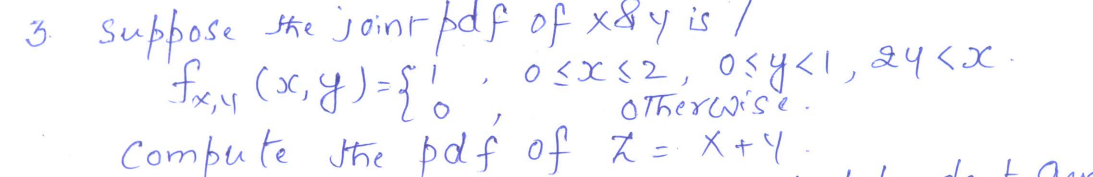 3. Suppose the joint pdf of x & y is /
fx,y (x,y) = { 1 , 0 ≤ x ≤ 2, 0 ≤ y < 1, 2y < x.
0 , otherwise.
Compute the pdf of Z = X + Y.